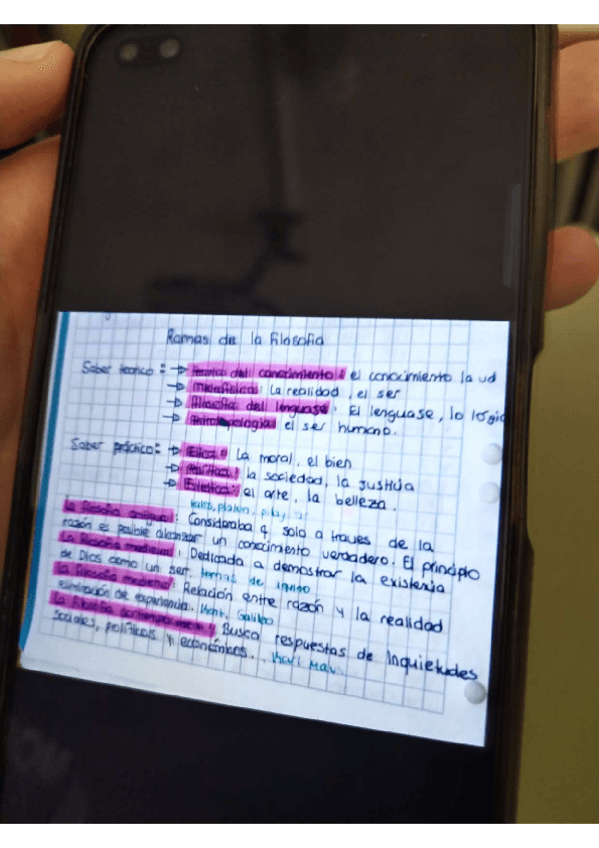 Ramas de la filosofia
Saber teorico: → teoria del conocimiento: el conocimiento la vd
→ Metafísica: La realidad, el ser
→ filosofia del lenguase: El lenguase, lo lógic
→ Antropologia: el ser humano.
Saber práctico: → Etica: La moral, el bien
→ Politica: la sociedad, la justicia
→ Estetica: el arte, la belleza.
platon,
La filosofia antigua: Consideraba q solo a traves de la
razón es posible alcanzar un conocimiento verdadero. El principio
La filosofia medieval: Dedicada a demostrar la existencia
de Dios como un ser. tomas de
La filosofia moderna: Relación entre razón y la realidad
eliminación de experiencia. Kant, Galileo
La filosofia: Busca respuestas de Inquietudes
sociales, políticas y económicas. Karl Max